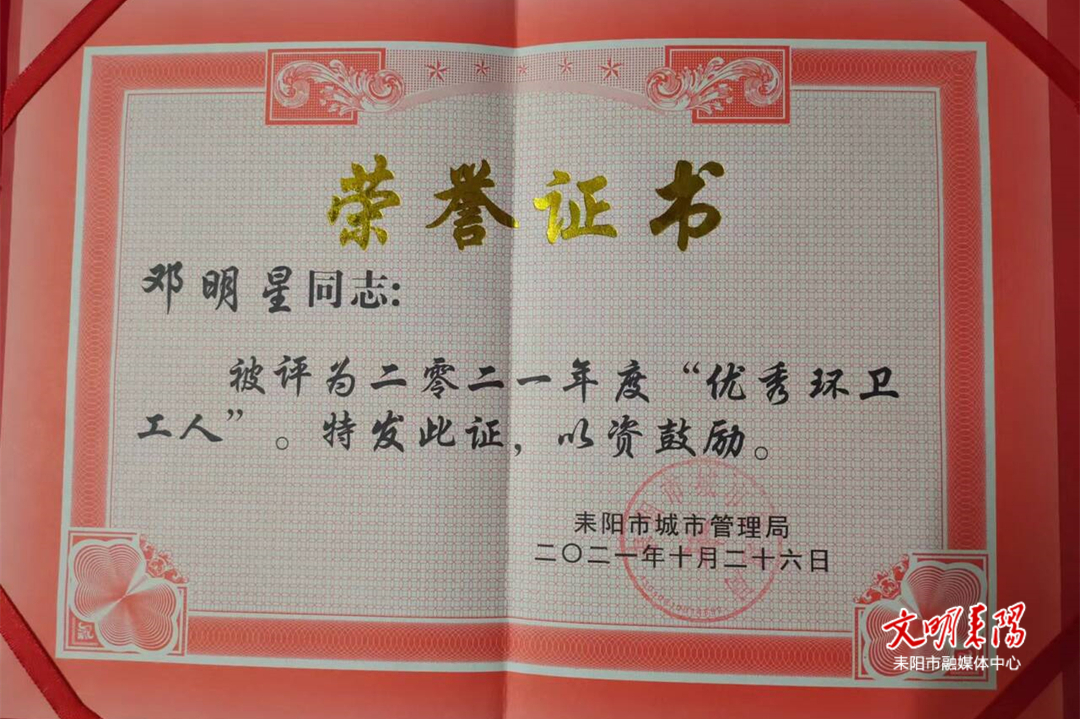 荣誉证书
邓明星同志：
被评为二零二一年度“优秀环卫
工人”。特发此证，以资鼓励。
耒阳市城市管理局
二〇二一年十月二十六日
文明耒阳
耒阳市融媒体中心